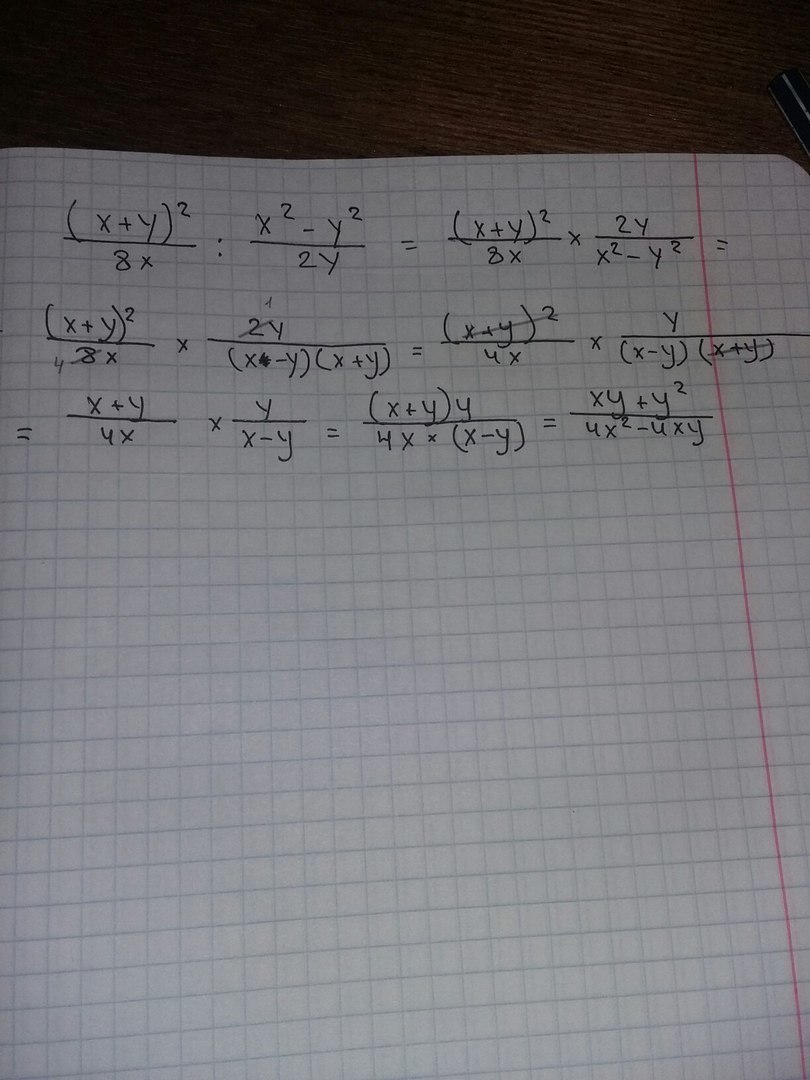 (x+y)²/8x : x²-y²/2y = (x+y)²/8x × 2y/x²-y² =
(x+y)²/4 8x × 1 2y/(x-y)(x+y) = (x+y)²/4x × y/(x-y)(x+y)
= x+y/4x × y/x-y = (x+y)y/4x × (x-y) = xy+y²/4x²-4xy